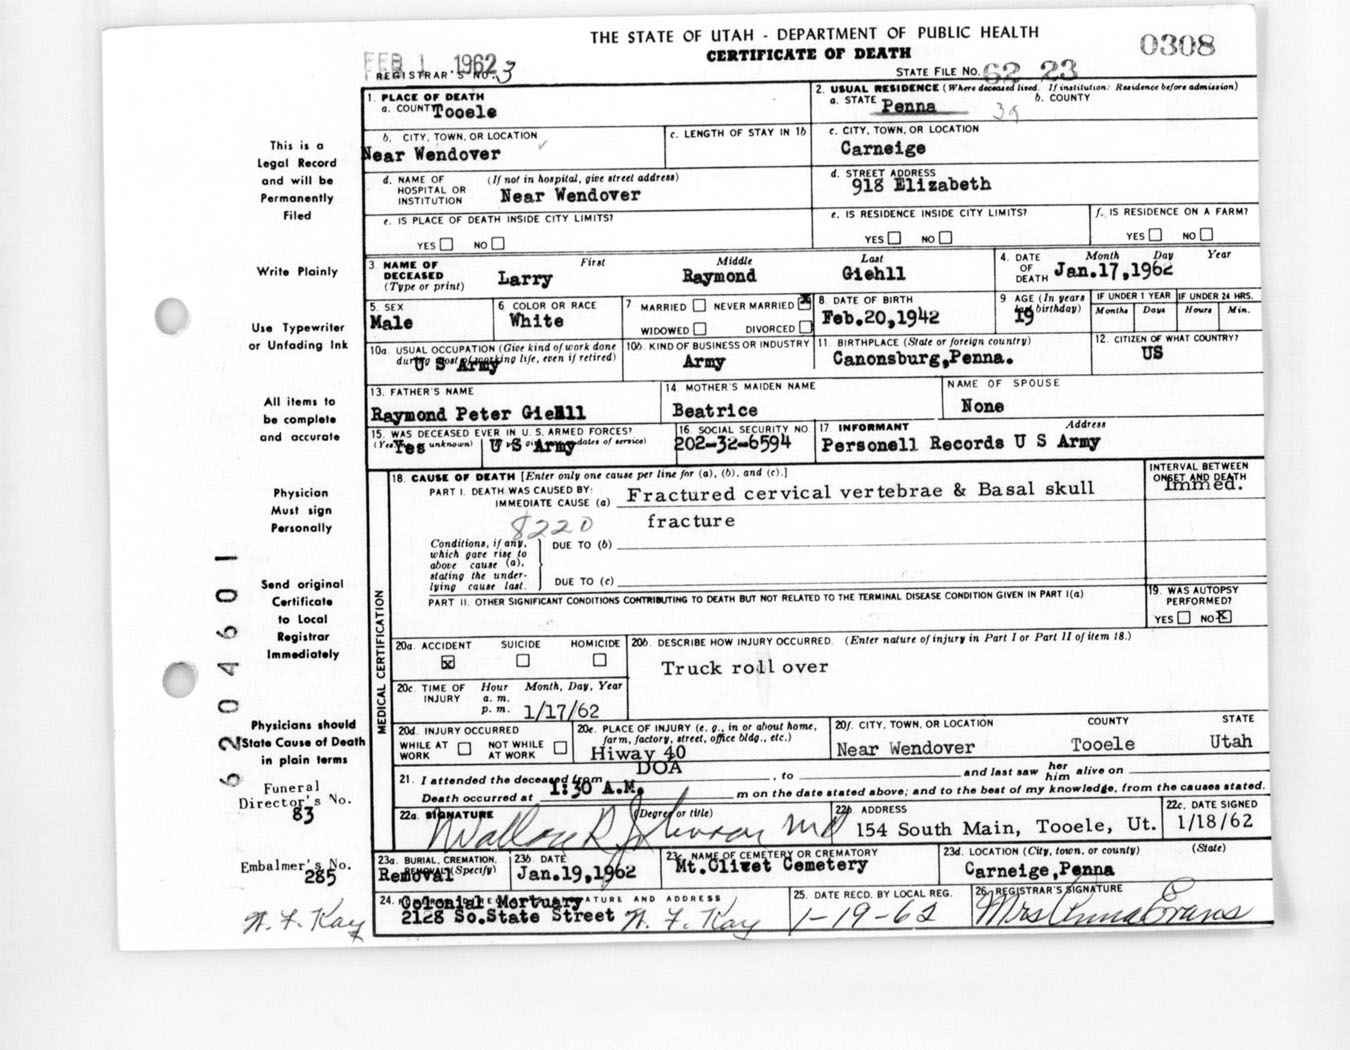 THE STATE OF UTAH - DEPARTMENT OF PUBLIC HEALTH
CERTIFICATE OF DEATH
0308
FEB 1 1962
REGISTRAR'S NO. 3
STATE FILE NO. 62 23
1. PLACE OF DEATH
a. COUNTY Tooele
2. USUAL RESIDENCE (Where deceased lived. If institution: Residence before admission)
a. STATE Penna
b. COUNTY
39
b. CITY, TOWN, OR LOCATION
Near Wendover
c. LENGTH OF STAY IN 1b
c. CITY, TOWN, OR LOCATION
Carneige
d. NAME OF HOSPITAL OR INSTITUTION
(If not in hospital, give street address)
Near Wendover
d. STREET ADDRESS
918 Elizabeth
e. IS PLACE OF DEATH INSIDE CITY LIMITS?
YES NO
e. IS RESIDENCE INSIDE CITY LIMITS?
YES NO
f. IS RESIDENCE ON A FARM?
YES NO
3. NAME OF DECEASED
(Type or print)
First Middle Last
Larry Raymond Giehll
4. DATE OF DEATH
Month Day Year
Jan.17,1962
5. SEX
Male
6 COLOR OR RACE
White
7 MARRIED NEVER MARRIED
WIDOWED DIVORCED
8. DATE OF BIRTH
Feb.20,1942
9 AGE (In years last birthday)
19
IF UNDER 1 YEAR
Months Days
IF UNDER 24 HRS.
Hours Min.
10a. USUAL OCCUPATION (Give kind of work done during most of working life, even if retired)
U S Army
10b. KIND OF BUSINESS OR INDUSTRY
Army
11. BIRTHPLACE (State or foreign country)
Canonsburg,Penna.
12. CITIZEN OF WHAT COUNTRY?
US
13. FATHER'S NAME
Raymond Peter Giehll
14. MOTHER'S MAIDEN NAME
Beatrice
NAME OF SPOUSE
None
15. WAS DECEASED EVER IN U. S. ARMED FORCES?
Yes
U S Army
16. SOCIAL SECURITY NO.
202-32-6594
17 INFORMANT Address
Personell Records U S Army
MEDICAL CERTIFICATION
18. CAUSE OF DEATH [Enter only one cause per line for (a), (b), and (c).]
INTERVAL BETWEEN ONSET AND DEATH
Immed.
PART I. DEATH WAS CAUSED BY:
IMMEDIATE CAUSE (a) Fractured cervical vertebrae & Basal skull
fracture
8220
Conditions, if any, which gave rise to above cause (a), stating the underlying cause last.
DUE TO (b)
DUE TO (c)
PART II. OTHER SIGNIFICANT CONDITIONS CONTRIBUTING TO DEATH BUT NOT RELATED TO THE TERMINAL DISEASE CONDITION GIVEN IN PART I(a)
19. WAS AUTOPSY PERFORMED?
YES NO
20a. ACCIDENT SUICIDE HOMICIDE
20b. DESCRIBE HOW INJURY OCCURRED. (Enter nature of injury in Part I or Part II of item 18.)
Truck roll over
20c. TIME OF INJURY
Hour Month, Day, Year
a. m.
p. m. 1/17/62
20d. INJURY OCCURRED
WHILE AT WORK NOT WHILE AT WORK
20e. PLACE OF INJURY (e. g., in or about home, farm, factory, street, office bldg., etc.)
Hiway 40
20f. CITY, TOWN, OR LOCATION COUNTY STATE
Near Wendover Tooele Utah
21. I attended the deceased from DOA , to and last saw her him alive on
Death occurred at 1:30 A.M. m on the date stated above; and to the best of my knowledge, from the causes stated.
22a. SIGNATURE (Degree or title)
22b. ADDRESS
154 South Main, Tooele, Ut.
22c. DATE SIGNED
1/18/62
23a. BURIAL, CREMATION, REMOVAL (Specify)
Removal
23b. DATE
Jan.19,1962
23c. NAME OF CEMETERY OR CREMATORY
Mt.Olivet Cemetery
23d. LOCATION (City, town, or county) (State)
Carneige,Penna
24. SIGNATURE AND ADDRESS
Colonial Mortuary
2128 So.State Street
25. DATE RECD. BY LOCAL REG.
1-19-62
26. REGISTRAR'S SIGNATURE
Mrs Anna Evans
This is a
Legal Record
and will be
Permanently
Filed
Write Plainly
Use Typewriter
or Unfading Ink
All items to
be complete
and accurate
Physician
Must sign
Personally
Send original
Certificate
to Local
Registrar
Immediately
Physicians should
State Cause of Death
in plain terms
Funeral
Director's No.
83
Embalmer's No.
285
6204601